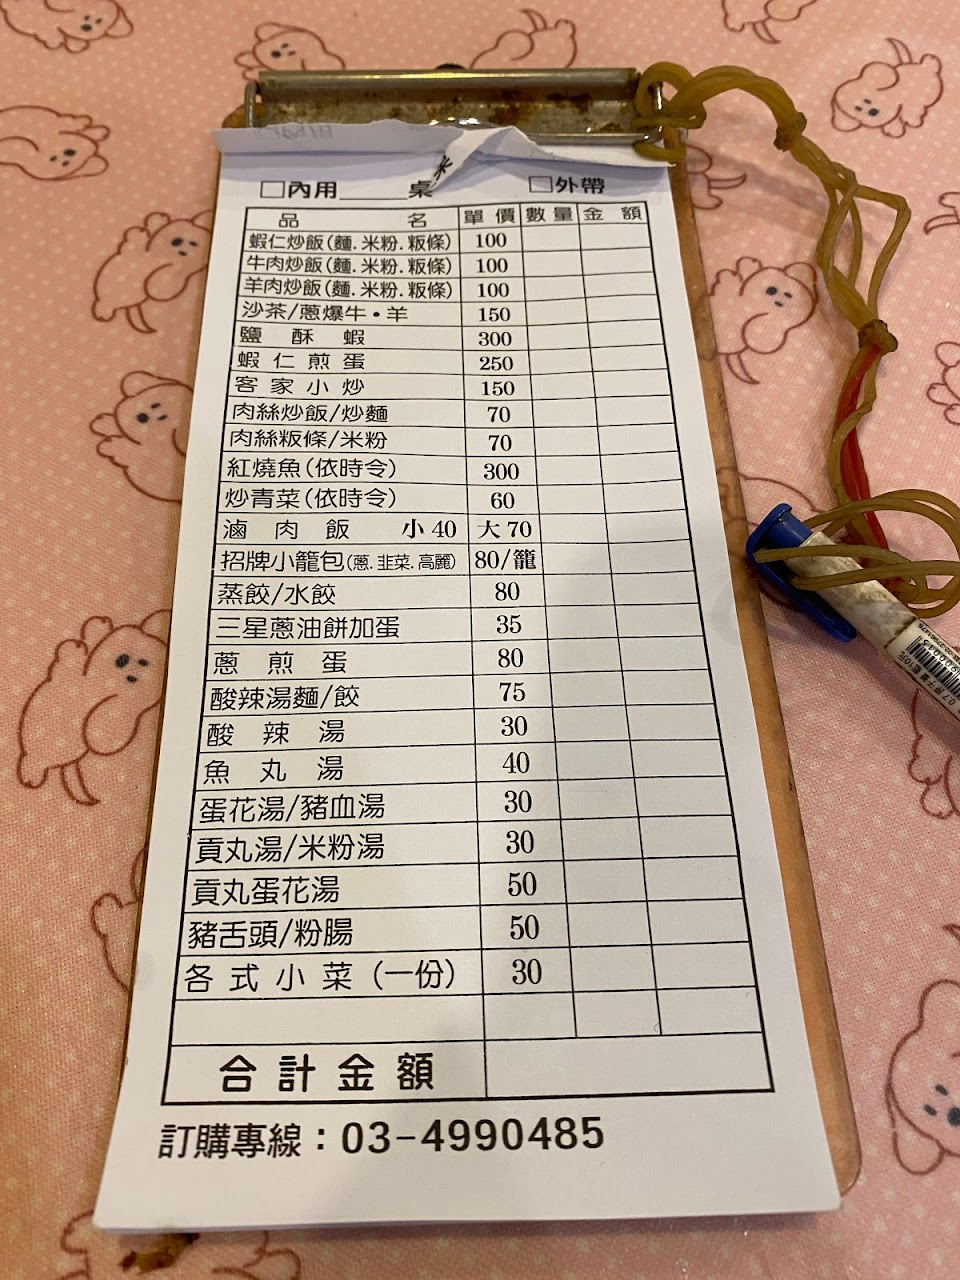 □內用____桌 □外帶
品名 單價 數量 金額
蝦仁炒飯(麵.米粉.粄條) 100
牛肉炒飯(麵.米粉.粄條) 100
羊肉炒飯(麵.米粉.粄條) 100
沙茶/蔥爆牛•羊 150
鹽酥蝦 300
蝦仁煎蛋 250
客家小炒 150
肉絲炒飯/炒麵 70
肉絲粄條/米粉 70
紅燒魚(依時令) 300
炒青菜(依時令) 60
滷肉飯 小40 大70
招牌小籠包(蔥.韭菜.高麗) 80/籠
蒸餃/水餃 80
三星蔥油餅加蛋 35
蔥煎蛋 80
酸辣湯麵/餃 75
酸辣湯 30
魚丸湯 40
蛋花湯/豬血湯 30
貢丸湯/米粉湯 30
貢丸蛋花湯 50
豬舌頭/粉腸 50
各式小菜(一份) 30
合計金額
訂購專線：03-4990485